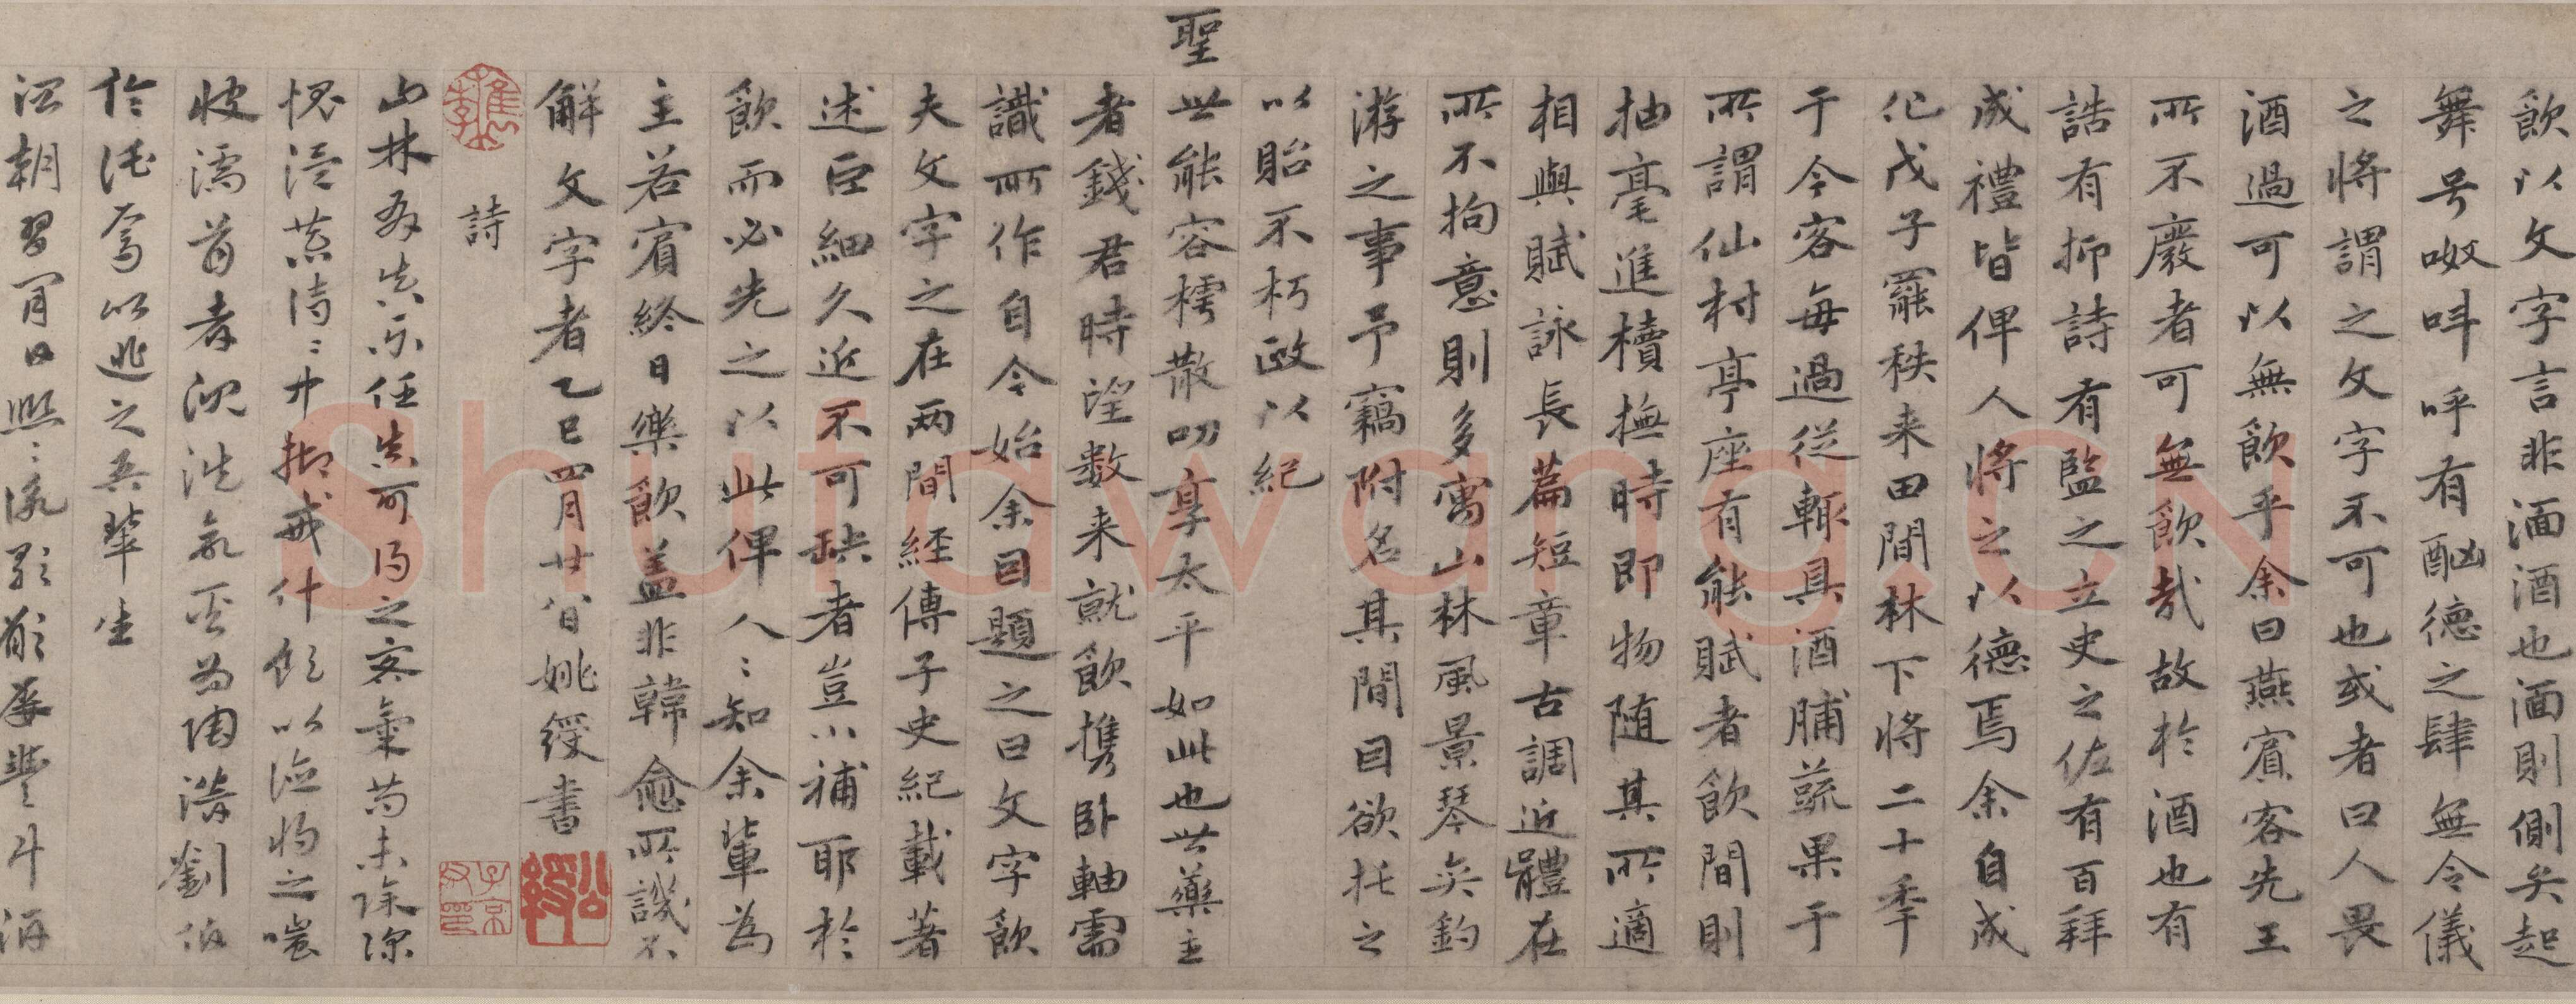 飲以文字言非湎酒也湎則側矣起
舞号呶呌呼有酗德之肆無令儀
之將謂之文字不可也或者曰人畏
酒過可以無飲乎余曰燕賓客先王
所不廢者可無飲哉故於酒也有
誥有抑詩有監之立史之佐有百拜
成禮皆俾人將之以德焉余自成
化戊子罷秩来田間林下將二十年
于今客每過從輙具酒脯蔬果于
所謂仙村亭座有能賦者飲間則
抽毫進櫝撫時即物随其所適
相與賦詠長篇短章古調近體在
所不拘意則多寓山林風景琴奕釣
游之事予竊附名其間目欲托之
以貽不朽政以紀
聖
世能容樗散叨享太平如此也世藥主
者錢君時望数来就飲携卧軸需
識所作自今始余目題之曰文字飲
夫文字之在两間経傳子史紀載著
述巨細久近不可缺者豈小補耶於
飲而必先之以此俾人〻知余輩為
主若賓終日樂飲盖非韓愈所譏不
解文字者乙巳四月廿八日姚綬書
詩
山林 任 可 之客氣尚未除深
以 物之嗤
彼濡首者沉 氣 為陶潜劉伯
於 焉以逃之吾輩生
朝 日熙〻
Shufawang.CN